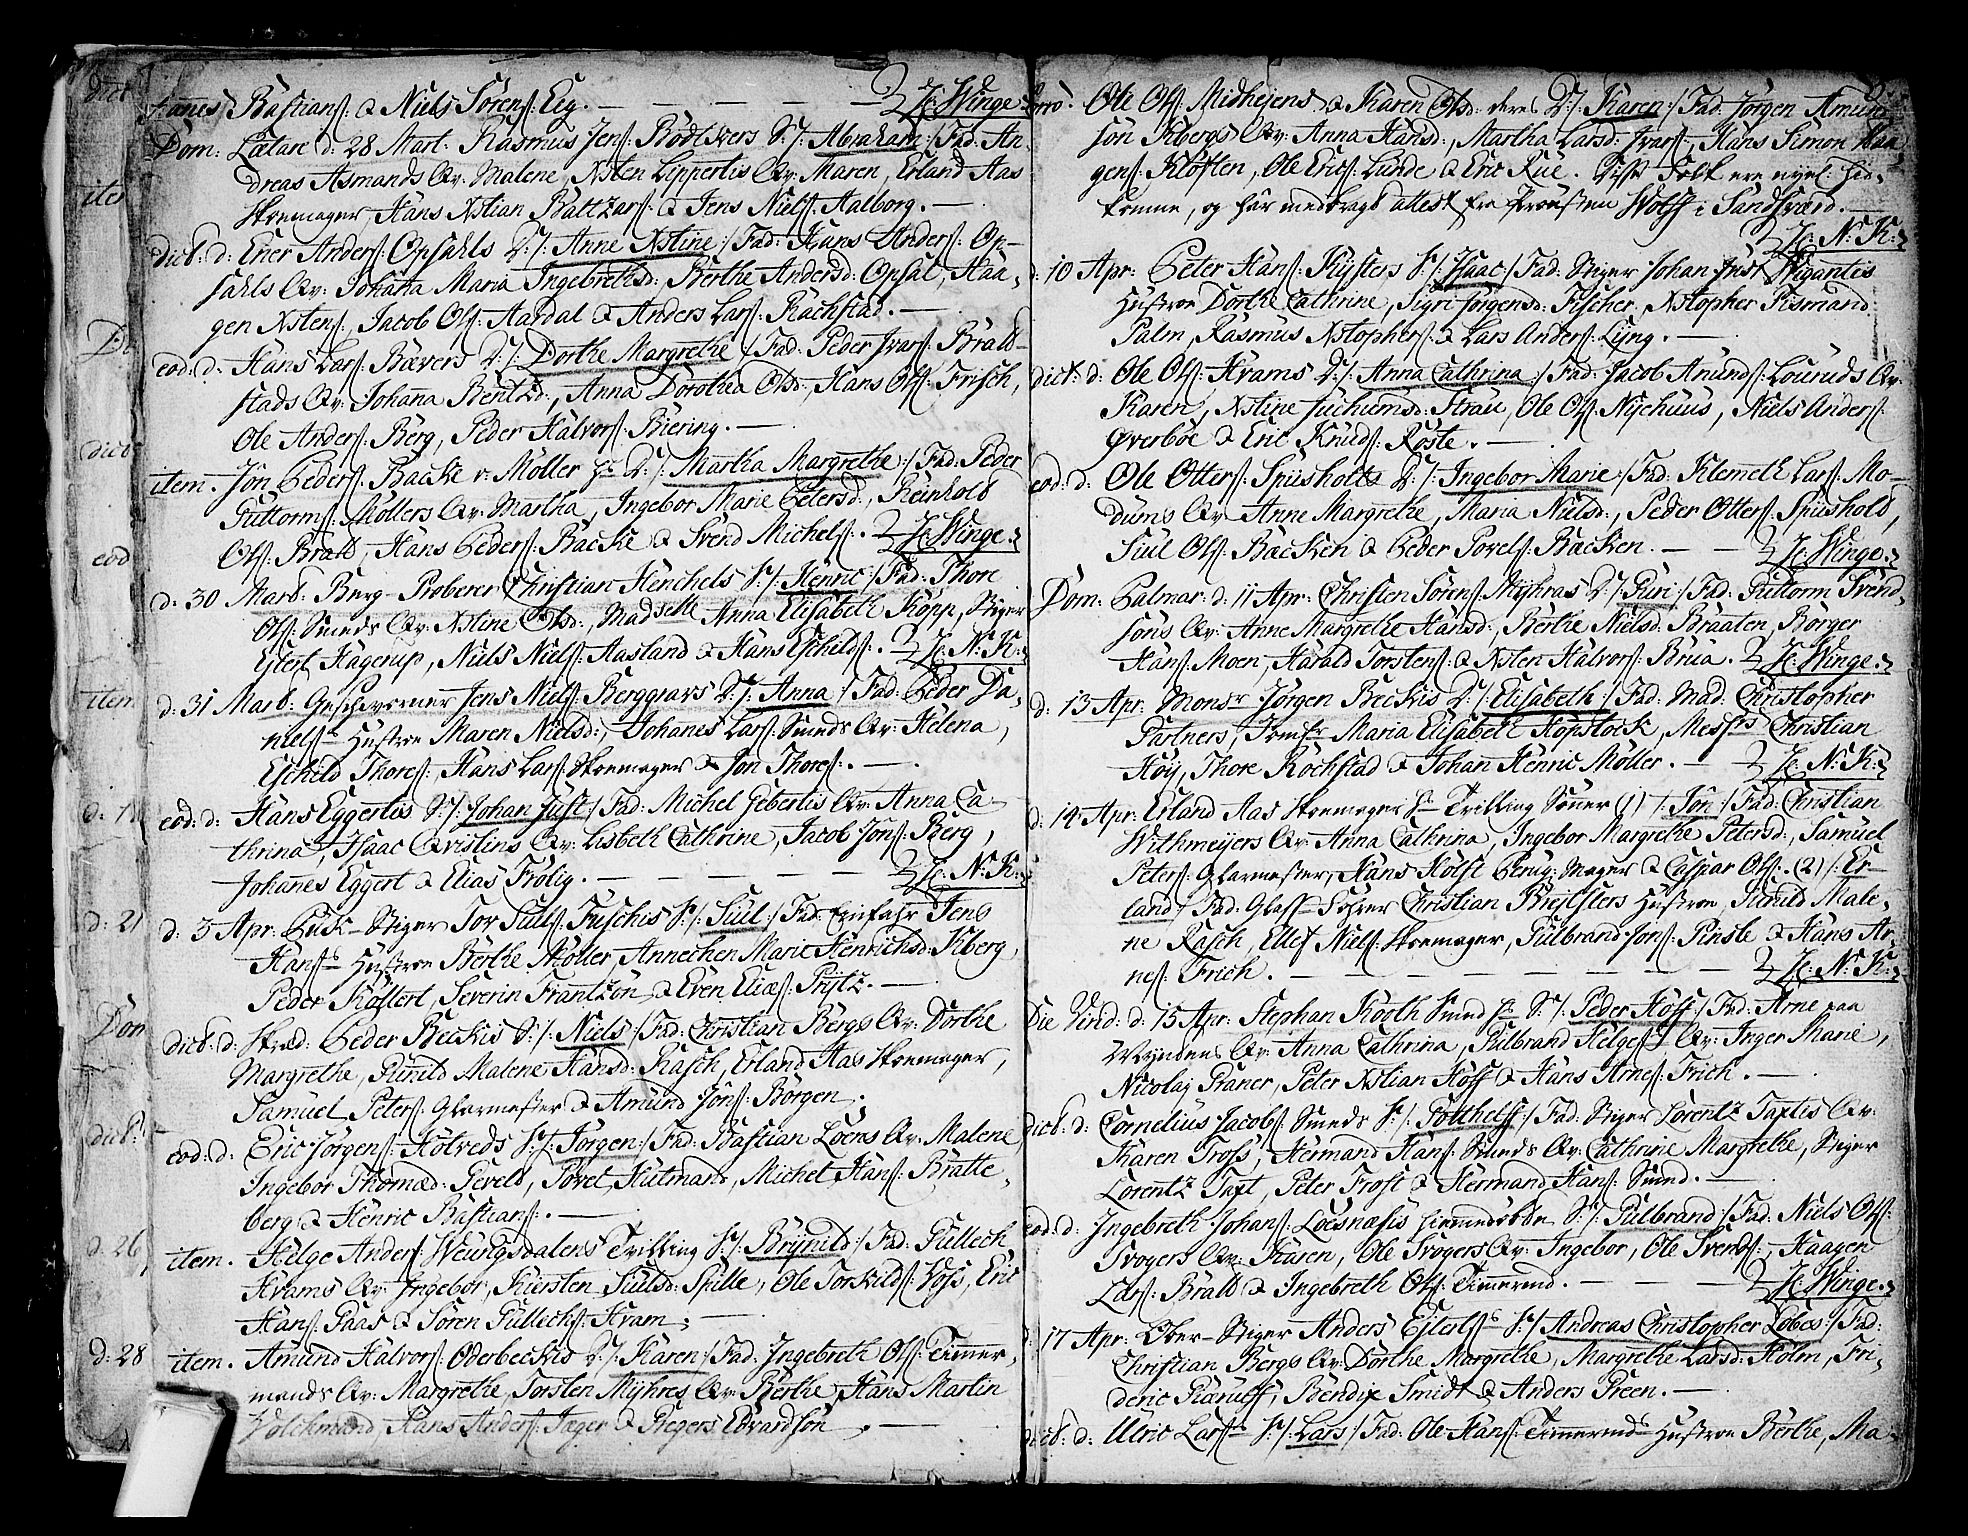 dict
ite
Do
dict
eod
item
d: 1
d: 21
Dom
dict:
d: 26
d: 28
hannes Bastians: & Niels Sörens: Eeg. — H: Winge.
Dom: Lætare d: 28 Mart: Rasmus Jens: Bödtkers S:/: Abraham :/ Fad: An-
dreas Asmands Qv: Malene, Xsten Leppertis Qv: Maren, Erland Aas
Skoemager, Hans Xstian Baltzars: & Jens Niels: Aalborg. —
dict: d: Ener Anders: Opsahls D:/: Anne Xstine :/ Fad: Hans Anders: Op-
sahls Qv: Johanna Maria Ingebrethsd: Berthe Andersd: Opsal, Haa-
gen Xstens:, Jacob Ols: Aardal & Anders Lars: Rachstad. —
eod: d: Hans Lars: Bævers D:/: Dorthe Margrethe :/ Fad: Peder Ivars: Bråld-
stads Qv: Johanna Bentzd:, Anna Dorothea Olsd:, Hans Ols: Frisch,
Ole Anders: Berg, Peder Halvors: Biering. —
item. Jon Peders: Backe v: Möller hs D:/: Martha Margrethe :/ Fad: Peder
Guttorms: Möllers Qv: Martha, Ingebor Marie Petersd:, Reinhold
Ols: Brald, Hans Peders: Backe & Svend Michels:. H: Winge.
d: 30 Mart: Berg-Proberer Christian Henchels S:/: Henric :/ Fad: Thore
Ols: Smeds Qv: Xstine Olsd:, Madselle Anna Elisabeth Kopp, Stiger
Estert Hagerup, Niels Niels: Aasland & Hans Eschilds:. H: N: K:
d: 31 Mart: Geschworner Jens Niels: Berggravs D:/: Anna :/ Fad: Peder Da-
niels: Hustroe Maren Nielsd:, Johanes Lars: Smeds Qv: Helena,
Eschild Thores:, Hans Lars: Skoemager & Jon Thores:. —
eod: d: Hans Eggertis S:/: Johan Just :/ Fad: Michel Gebertis Qv: Anna Ca-
thrina, Isaac Qvistins Qv: Lisbeth Cathrine, Jacob Jöns: Berg,
Johannes Eggert & Elias Frölig. — H: N: K:
d: 3 Apr: Stiger Tor Suls: Fuschis S:/: Siul :/ Fad: Einfahr Jens
Hans: Hustroe Berthe Möller, Annechen Marie Henrichsd: Kberg,
Peder Kollert, Severin Frantzön & Even Elias: Prytz. —
dict: d: Skræd: Peder Beckis S:/: Niels :/ Fad: Christian Bergs Qv: Dorthe
Margrethe, Gunild Malene Hansd: Rasch, Erland Aas Skoemager,
Samuel Peters: Glarmester & Amund Jöns: Börgen. —
eod: d: Eric Jörgens: Holveds S:/: Jörgen :/ Fad: Bastian Loens Qv: Malene
Ingebor Thomæd: Geveld, Povel Hutmand, Michel Hans: Bratte-
berg & Henric Bastians:. —
item. Helge Anders: Weungsdalens Trilling S:/: Brynild :/ Fad: Gullech
Kvams Qv: Ingebor, Kiersten Siulsd: Spille, Ole Torkilds: Voss, Eric
Hans: Paas & Sören Gullechs: Kvam. —
item. Amund Halvors: Oderbeckis D:/: Karen :/ Fad: Ingebreth Ols: Timer-
mands Qv: Margrethe, Torsten Myhres Qv: Berthe, Hans Martin
Volchmand, Hans Anders: Jæger & Regers Edvardsön. —
Ole Ols: Midhejens & Karen Olsd: deres D:/: Karen :/ Fad: Jörgen Amund
sön Kbergs Qv: Anna Hansd:, Martha Larsd: Ivars:, Hans Simon Haa-
gens: Kloften, Ole Erics: Lunde & Eric Rue. Disse Folk ere nyel: hid-
komne, og har medbragt attest fra Provsten Wolff i Sandsværd. —
H: N: K:
d: 10 Apr: Peter Hans: Kysters S:/: Isaac :/ Fad: Stiger Johan Just Wigantis
Hustroe Dorthe Cathrine, Sigri Jörgensd: Fischer, Xstopher Tismand
Palm, Rasmus Xstophers: & Lars Anders: Lyng. —
dict: d: Ole Ols: Kvams D:/: Anna Cathrina :/ Fad: Jacob Amunds: Louruds Qv:
Karen, Xstine Juchumsd: Strau, Ole Ols: Nyehuus, Niels Anders:
Överböe & Eric Knuds: Röste. —
eod: d: Ole Otters: Spiisholts D:/: Ingebor Marie :/ Fad: Klemeth Lars: Mo-
dums Qv: Anne Margrethe, Maria Nielsd:, Peder Otters: Spiishold,
Siul Ols: Backen & Peder Povels: Backen. — H: Winge.
Dom: Palmar: d: 11 Apr: Christen Sörens: Myhras D:/: Guri :/ Fad: Guttorm Svend-
söns Qv: Anne Margrethe Hansd:, Berthe Nielsd: Braaten, Börger
Hans: Moen, Harald Torstens: & Xsten Halvors: Brua. H: Winge.
d: 13 Apr: Monsr Jörgen Beckis D:/: Elisabeth :/ Fad: Mad: Christopher
Partners, Jomfr Maria Elisabeth Kopstock, Messrs Christian
Höy, Thore Rochstad & Johan Henric Möller. — H: N: K:
d: 14 Apr: Erland Aas Skoemager hs Trilling Sönner (1) /: Jön :/ Fad: Christian
Withmeyers Qv: Anna Cathrina, Ingebor Margrethe Petersd:, Samuel
Peters: Glarmester, Hans Holst Peruqmager & Caspar Ols:. (2) /: Er-
land :/ Fad: Glass Förer Christian Hustroe, Gunild Male-
ne Rasch, Ellef Niels: Skoemager, Gulbrand Jöns: Pinsle & Hans Ar-
nes: Frich. — H: N: K:
Die Virid: d: 15 Apr: Stephan Kooth Smed hs S:/: Peder Hoff :/ Fad: Arne paa
Wyndens Qv: Anna Cathrina, Gulbrand Helges: Qv: Inger Marie,
Nicolaj Praner, Peter Xstian Hoff & Hans Arnes: Frich. —
dict: d: Cornelius Jacobs: Smeds S:/: Gotthelff :/ Fad: Stiger Lorentz Taxtis Qv:
Karen Tross, Hermand Hans: Smeds Qv: Cathrine Margrethe, Stiger
Lorentz Taxt, Peter Frost & Hermand Hans: Smed. —
eod: d: Ingebreth Johans: Loesnæsis hiemmedöbte S:/: Gulbrand :/ Fad: Niels Ols:
Svogers Qv: Karen, Ole Svogers Qv: Ingebor, Ole Svends:, Haagen
Lars: Brald & Ingebreth Ols: Timermd. — H: Winge.
d: 17 Apr: Ober-Stiger Anders Estertss S:/: Andreas Christopher Lobes :/ Fad:
Christian Bergs Qv: Dorthe Margrethe, Margrethe Larsd: Holm, Fri-
deric Karuess, Bendix Smidt & Anders Preen. —
dict: d: Ulric Lars: S:/: Lars :/ Fad: Ole Hans: Timermds Hustroe Berthe, Ma-